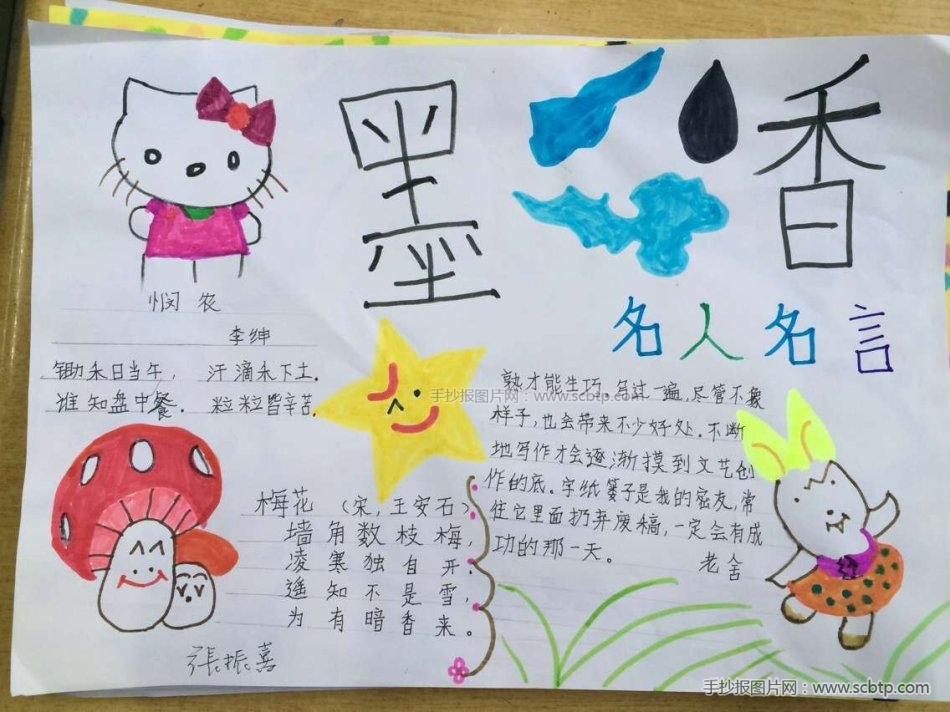 墨香
悯农
李绅
锄禾日当午，汗滴禾下土。
谁知盘中餐。粒粒皆辛苦。
名人名言
熟才能生巧。写过一遍，尽管不象
样子，也会带来不少好处。不断
地写作才会逐渐摸到文艺创
作的底。字纸篓子是我的密友，常
往它里面扔弃废稿，一定会有成
功的那一天。
老舍
梅花（宋，王安石）
墙角数枝梅，
凌寒独自开；
遥知不是雪，
为有暗香来。
張振嘉
手抄报图片网：www.scbtp.com
手抄报图片网：www.scbtp.com